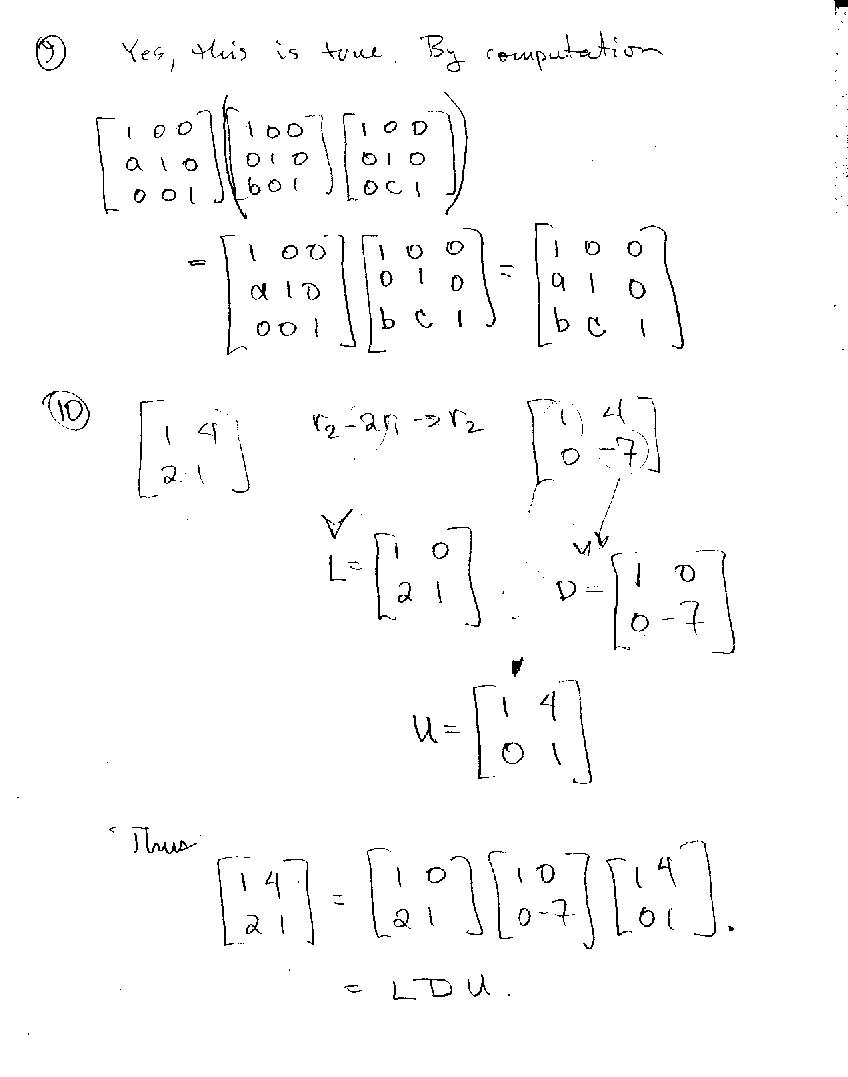 ⑨ Yes, this is true. By computation
[1 0 0; a 1 0; 0 0 1] ([1 0 0; 0 1 0; b 0 1] [1 0 0; 0 1 0; 0 c 1])
= [1 0 0; a 1 0; 0 0 1] [1 0 0; 0 1 0; b c 1] = [1 0 0; a 1 0; b c 1]
⑩ [1 4; 2 1] r₂-2r₁ → r₂ [1 4; 0 -7]
L = [1 0; 2 1] D = [1 0; 0 -7]
U = [1 4; 0 1]
Thus
[1 4; 2 1] = [1 0; 2 1] [1 0; 0 -7] [1 4; 0 1].
= LDU.